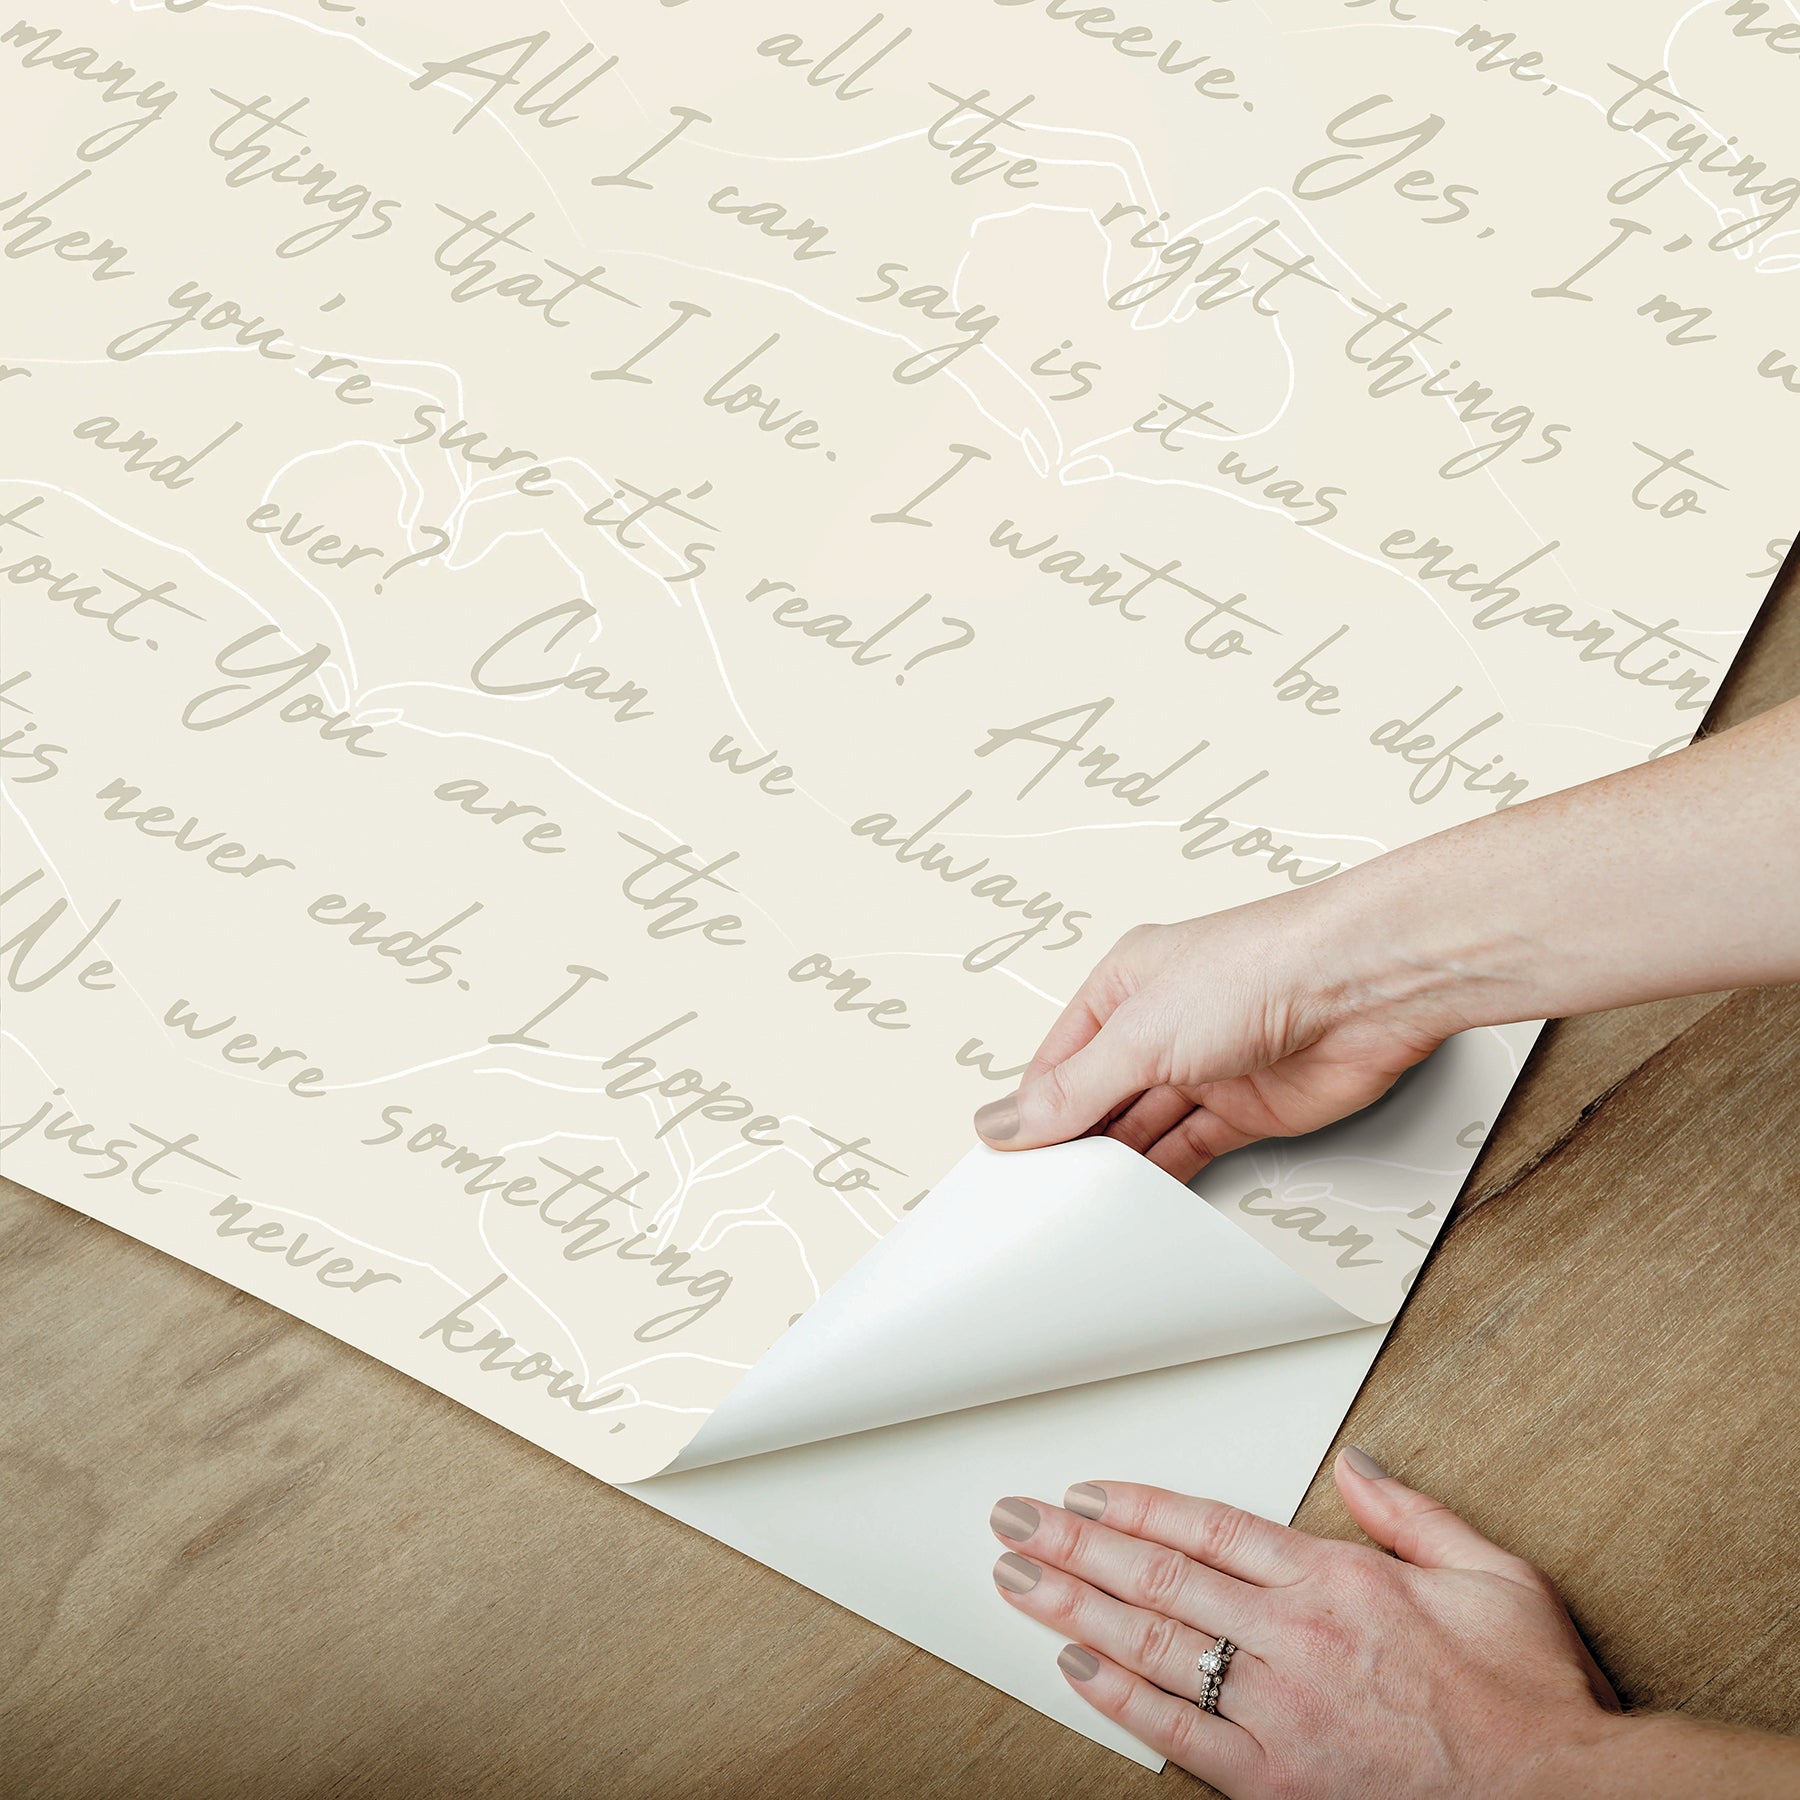 me, trying
Yes, I'm
all the right things to
All I can say is it was
many things that I love. I want to be
you're sure it's real? And how
and ever? Can we always
You are the one can't
is never ends. I hope to
We were something
just never know,